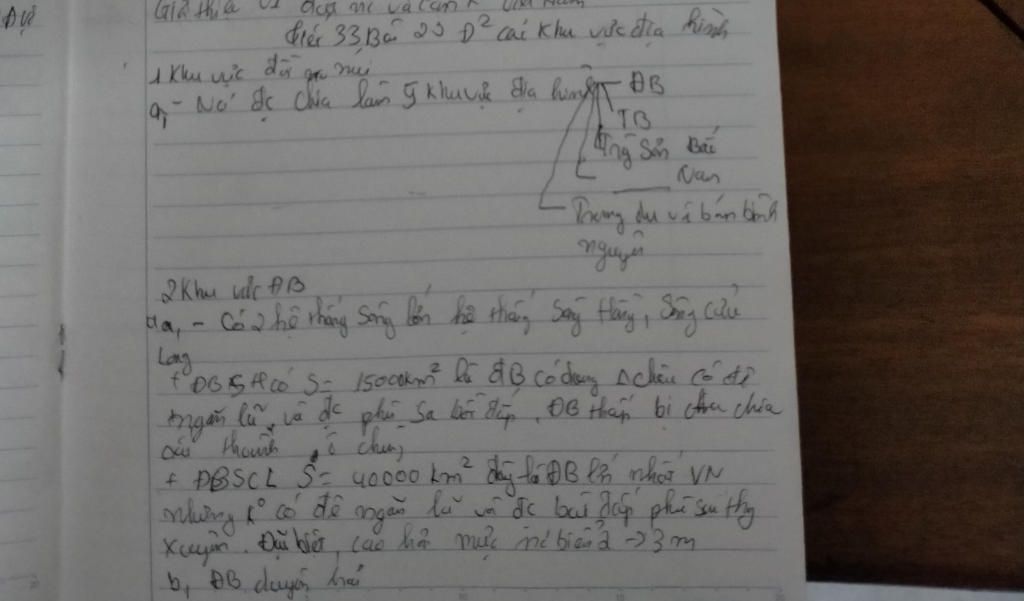 Tiết 33 Bài 29 Đ² các khu vực địa hình
1 Khu vực đồi núi
a, - Nó đc chia làm 5 khu vực địa hình
ĐB
TB
Trg Sơn Bắc
Nam
Trung du và bán bình
nguyên
2 Khu vực ĐB
a, - Có 2 hệ thống sông lớn hệ thống Sông Hồng, Sông Cửu
Long
+ ĐBSH có S = 15000km² là ĐB có dạng Δ châu có đê
ngăn lũ, và đc phù sa bồi đắp, ĐB thấp bị chia
các thành ô chũng
+ ĐBSCL S = 40000 km² đây là ĐB lớn nhất VN
nhưng k° có đê ngăn lũ và đc bồi đắp phù sa thg
xuyên. Đặc biệt, cao hơn mực nc biển 2 -> 3 m
b, ĐB duyên hải